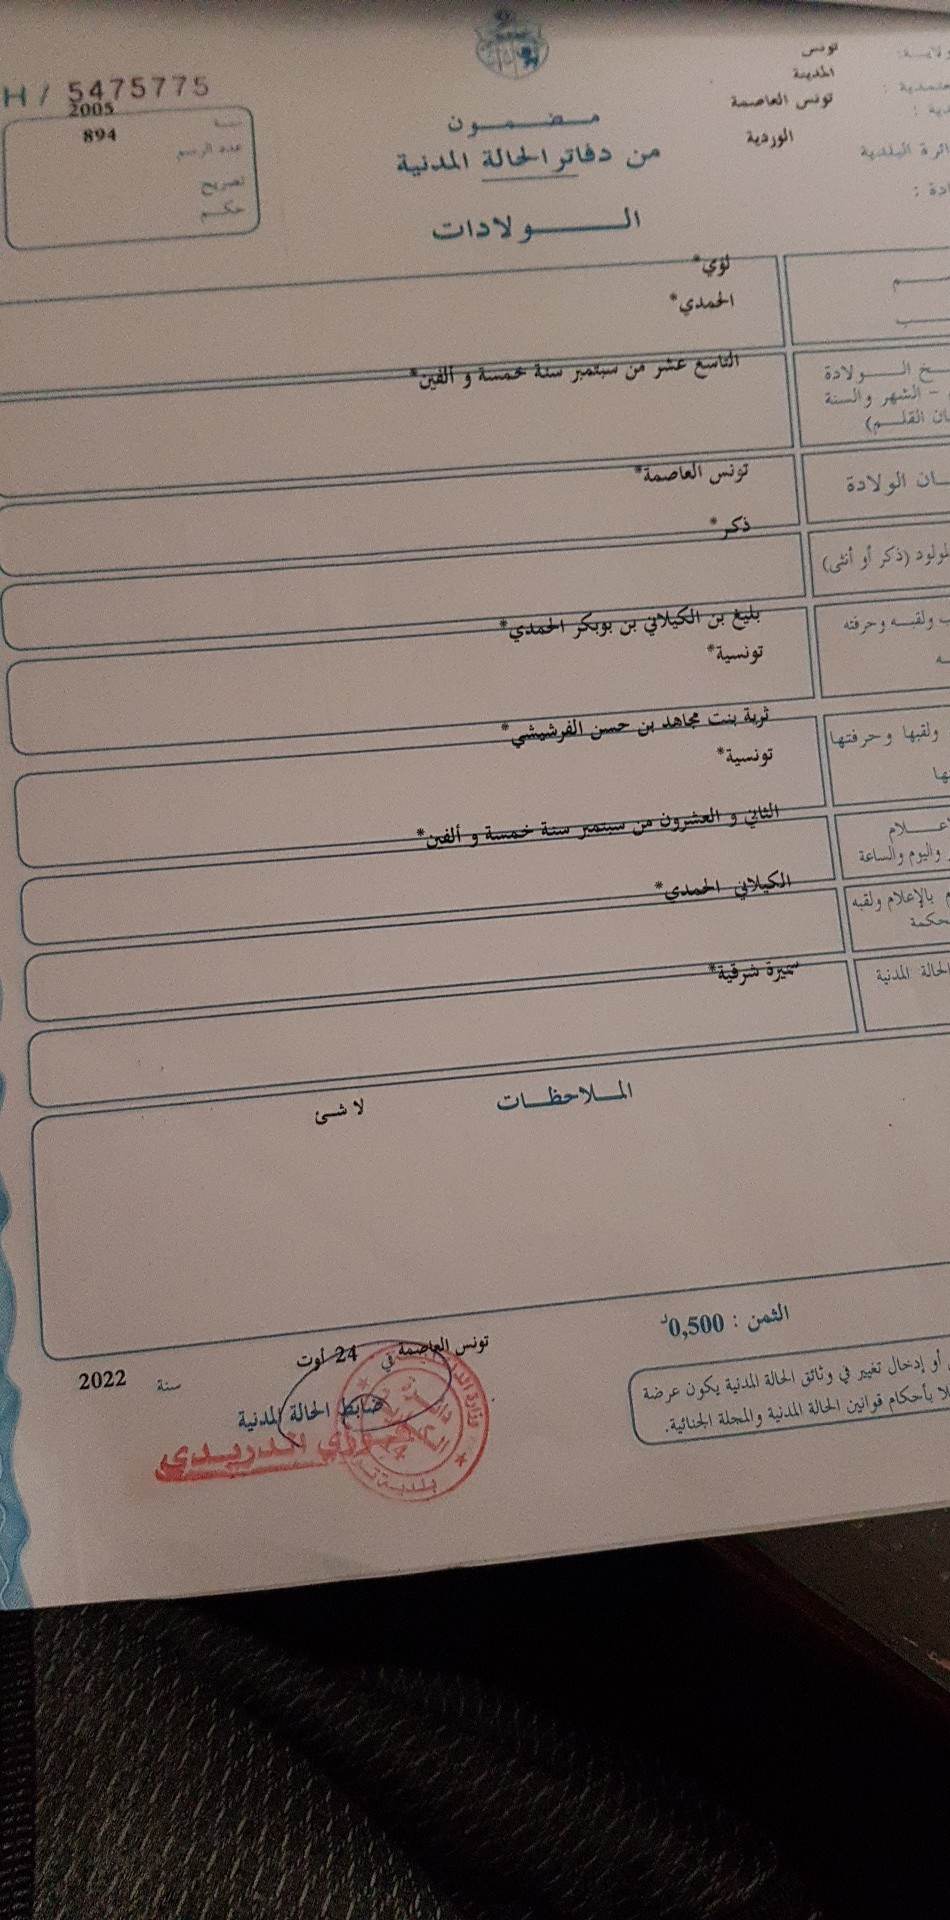 H / 5475775
2005
894
سنة
عدد الرسم
تصريح
حكم
مضمون
من دفاتر الحالة المدنية
الولادات
تونس
المدينة
تونس العاصمة
الوردية
لؤي*
الحمدي*
التاسع عشر من سبتمبر سنة خمسة و ألفين*
الولادة
- الشهر والسنة
تونس العاصمة*
الولادة
ذكر*
(ذكر أو أنثى)
بليغ بن الكيلاني بن بوبكر الحمدي*
ولقبه وحرفته
تونسية*
ثرية بنت مجاهد بن حسن الفرشيشي*
ولقبها وحرفتها
تونسية*
الثاني و العشرون من سبتمبر سنة خمسة و ألفين*
واليوم والساعة
الكيلاني الحمدي*
بالإعلام ولقبه
سميرة شرقية*
الحالة المدنية
الملاحظات
لا شئ
الثمن : 0,500د
أو إدخال تغيير في وثائق الحالة المدنية يكون عرضة
بأحكام قوانين الحالة المدنية والمجلة الجنائية.
تونس العاصمة في 24 أوت سنة 2022
ضابط الحالة المدنية
الدريدي